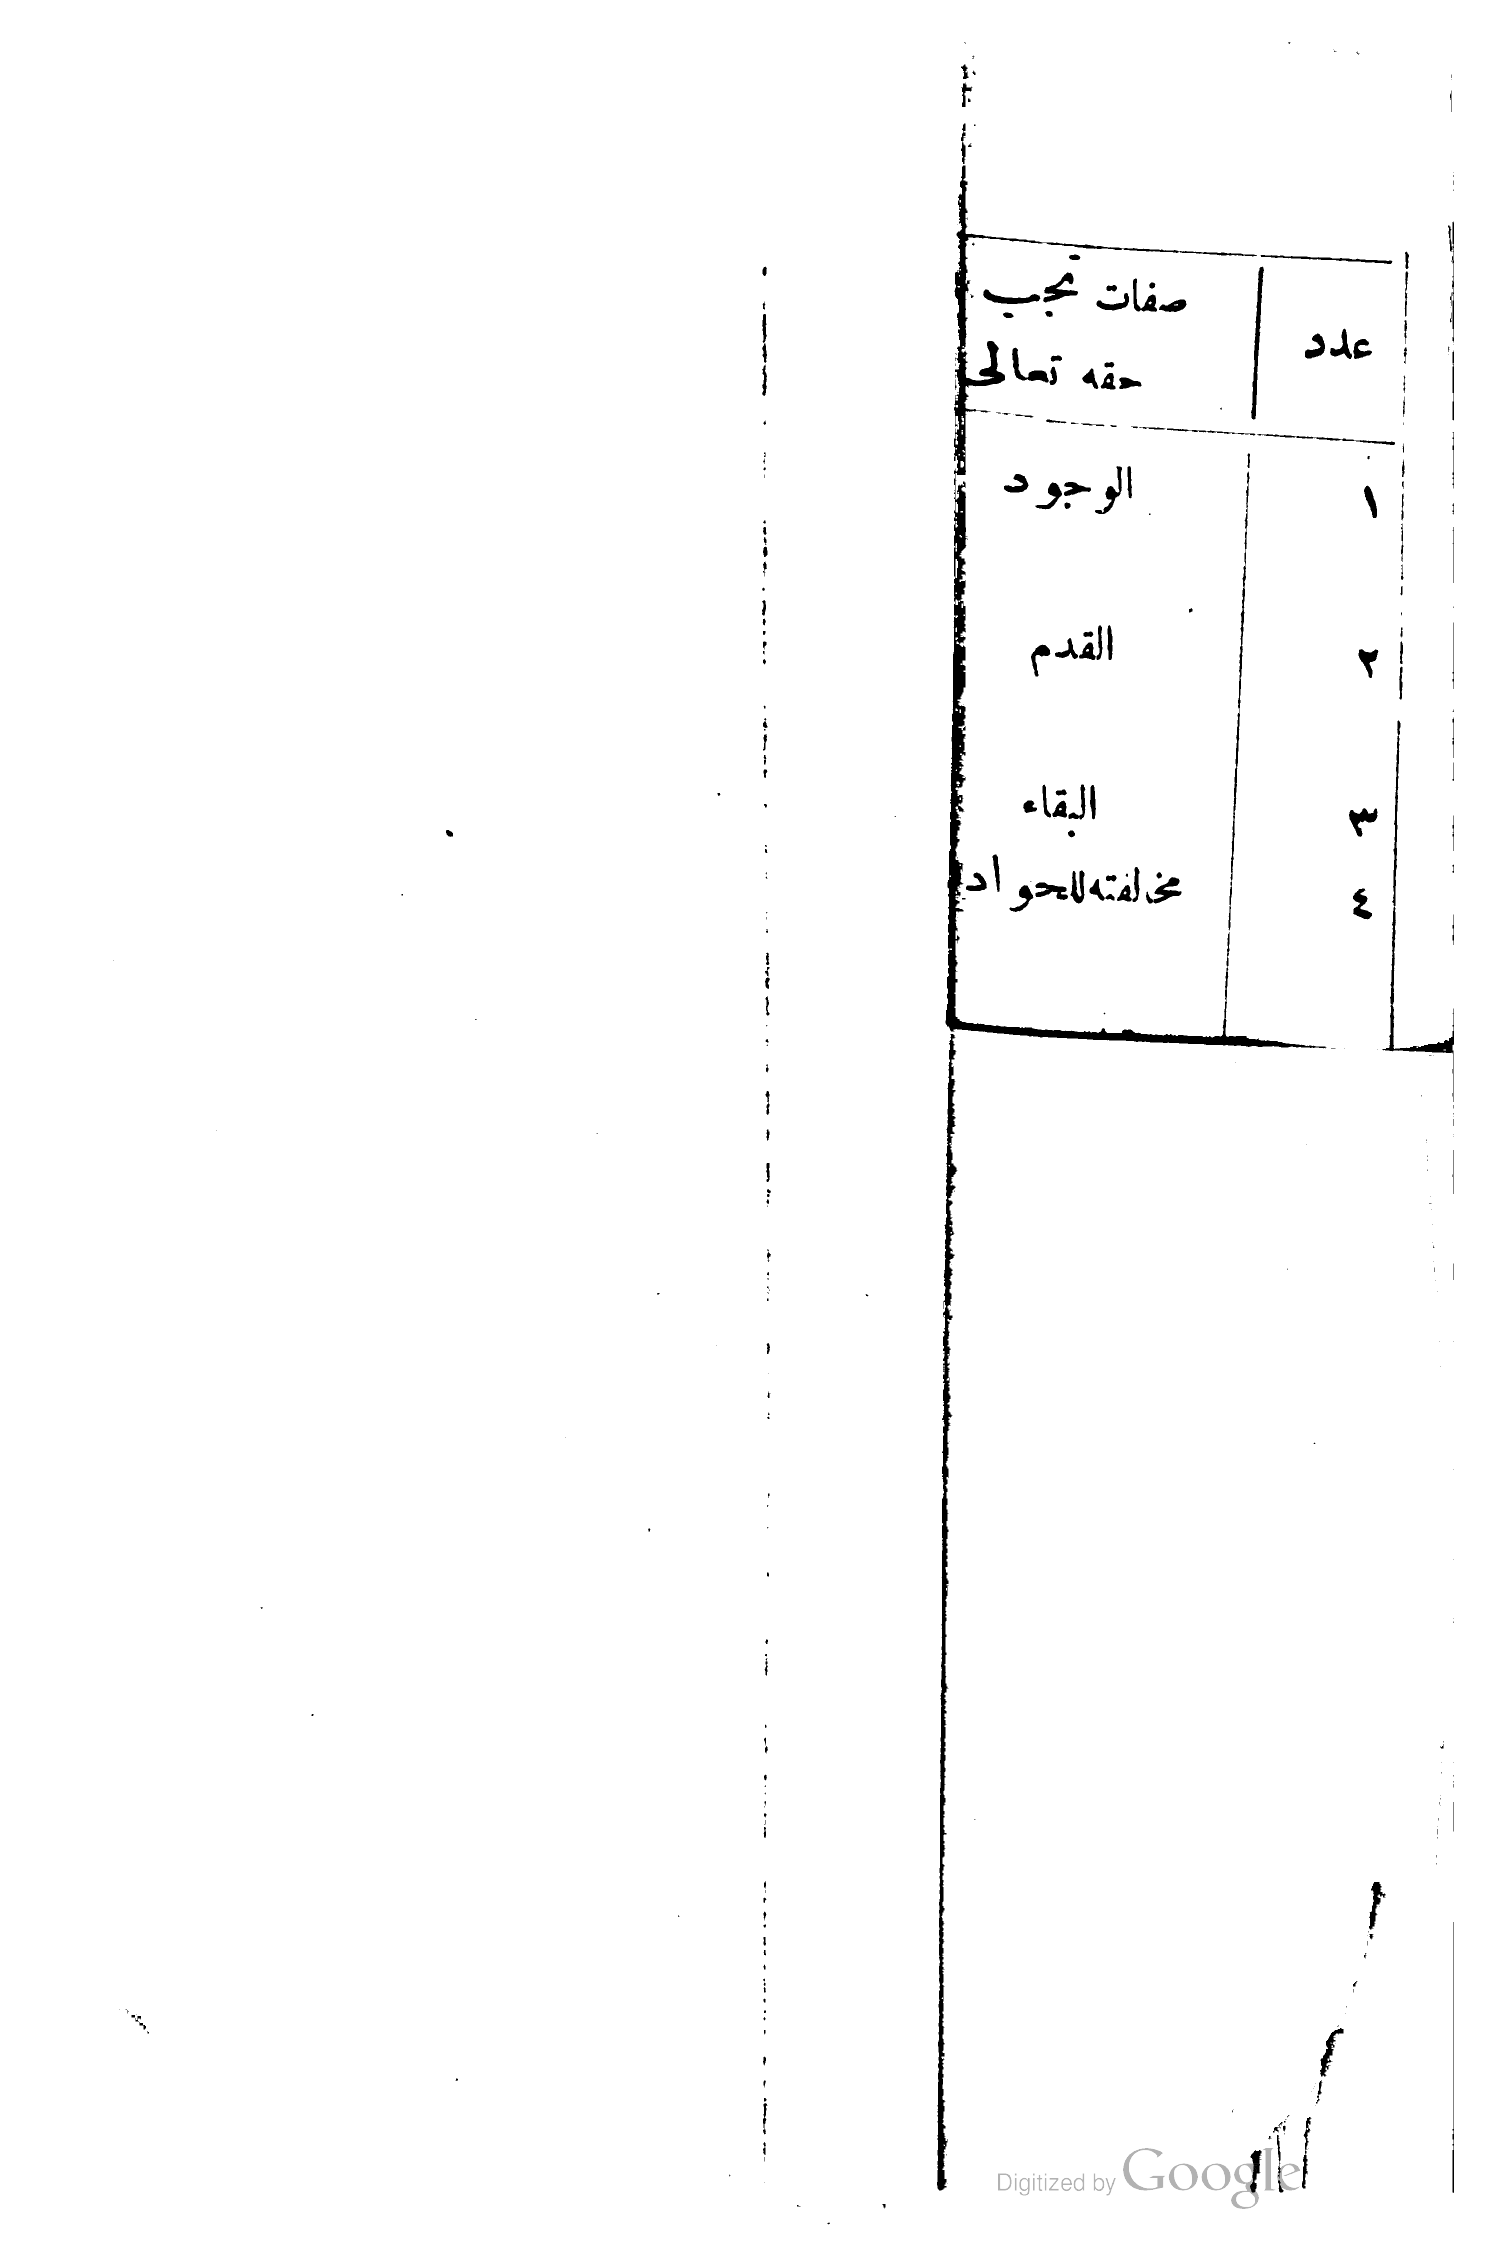 عدد
صفات تجب
حقه تعالى
١ الوجود
٢ القدم
٣ البقاء
٤ مخالفته للحواد
Digitized by Google